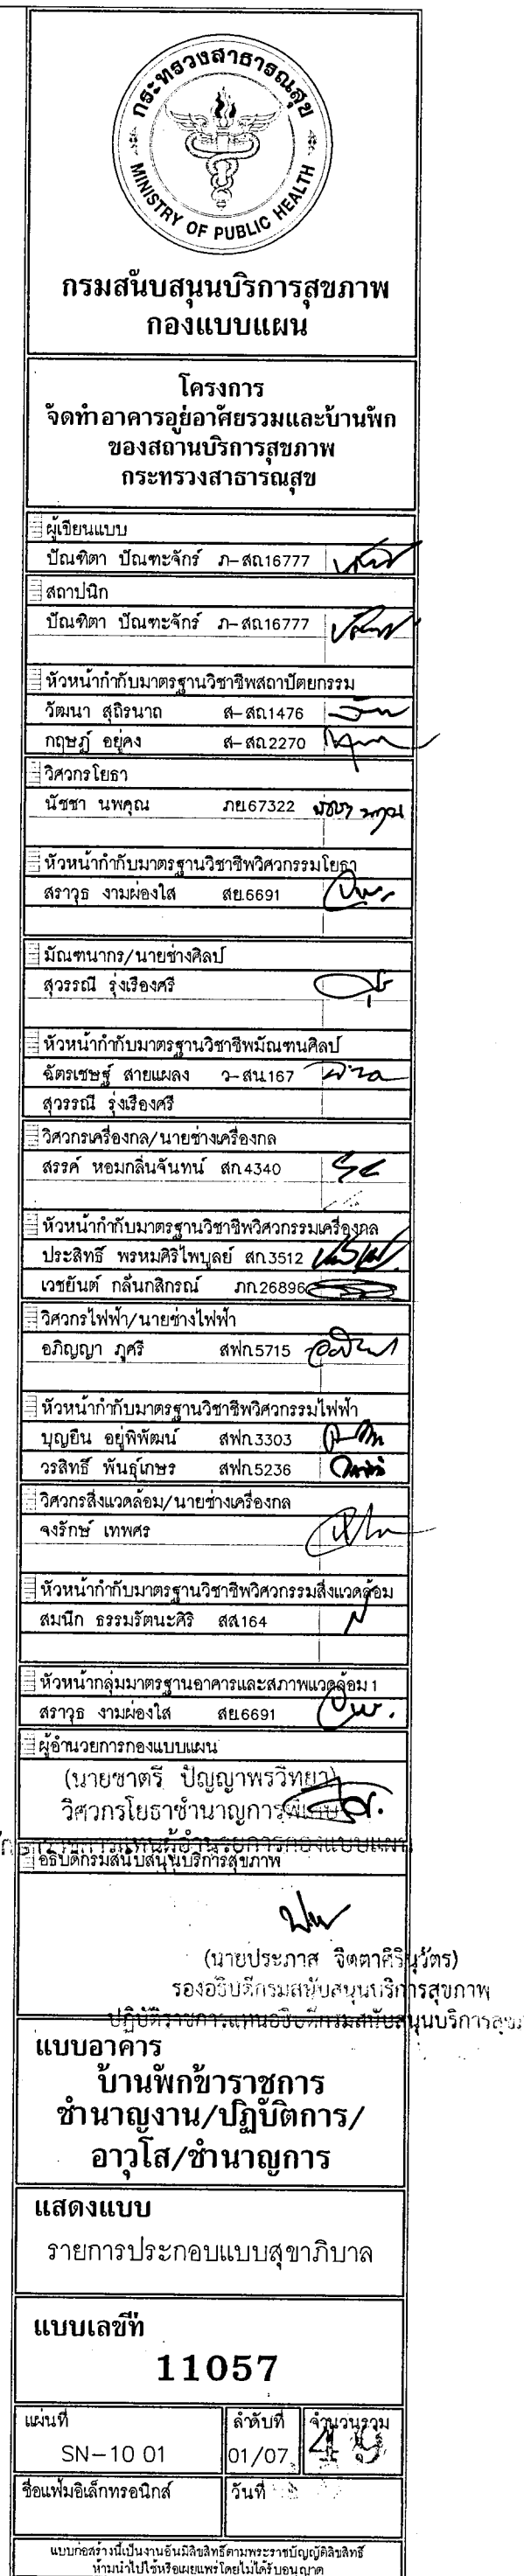 กระทรวงสาธารณสุข
MINISTRY OF PUBLIC HEALTH
กรมสนับสนุนบริการสุขภาพ
กองแบบแผน
โครงการ
จัดทำอาคารอยู่อาศัยรวมและบ้านพัก
ของสถานบริการสุขภาพ
กระทรวงสาธารณสุข
ผู้เขียนแบบ
ปัณฑิตา ปัณฑะจักร์ ภ-สถ.16777
สถาปนิก
ปัณฑิตา ปัณฑะจักร์ ภ-สถ.16777
หัวหน้ากำกับมาตรฐานวิชาชีพสถาปัตยกรรม
วัฒนา สุถิรนาถ ส-สถ.1476
กฤษฎ์ อยู่คง ส-สถ.2270
วิศวกรโยธา
นัชชา นพคุณ ภย.67322
หัวหน้ากำกับมาตรฐานวิชาชีพวิศวกรรมโยธา
สราวุธ งามผ่องใส สย.6691
มัณฑนากร/นายช่างศิลป์
สุวรรณี รุ่งเรืองศรี
หัวหน้ากำกับมาตรฐานวิชาชีพมัณฑนศิลป์
ฉัตรเชษฐ์ สายแผลง ว-สน.167
สุวรรณี รุ่งเรืองศรี
วิศวกรเครื่องกล/นายช่างเครื่องกล
สรรค์ หอมกลิ่นจันทน์ สก.4340
หัวหน้ากำกับมาตรฐานวิชาชีพวิศวกรรมเครื่องกล
ประสิทธิ์ พรหมศิริไพบูลย์ สก.3512
เวชยันต์ กลั่นกสิกรณ์ ภก.26896
วิศวกรไฟฟ้า/นายช่างไฟฟ้า
อภิญญา ภูศรี สฟก.5715
หัวหน้ากำกับมาตรฐานวิชาชีพวิศวกรรมไฟฟ้า
บุญยืน อยู่พิพัฒน์ สฟก.3303
วรสิทธิ์ พันธุ์เกษร สฟก.5236
วิศวกรสิ่งแวดล้อม/นายช่างเครื่องกล
จงรักษ์ เทพศร
หัวหน้ากำกับมาตรฐานวิชาชีพวิศวกรรมสิ่งแวดล้อม
สมนึก ธรรมรัตนะศิริ สส.164
หัวหน้ากลุ่มมาตรฐานอาคารและสภาพแวดล้อม 1
สราวุธ งามผ่องใส สย.6691
ผู้อำนวยการกองแบบแผน
(นายชาตรี ปัญญาพรวิทยา)
วิศวกรโยธาชำนาญการพิเศษ
ราชการแทนผู้อำนวยการกองแบบแผน
อธิบดีกรมสนับสนุนบริการสุขภาพ
(นายประภาส จิตตาศิรินุวัตร)
รองอธิบดีกรมสนับสนุนบริการสุขภาพ
ปฏิบัติราชการแทนอธิบดีกรมสนับสนุนบริการสุข
แบบอาคาร
บ้านพักข้าราชการ
ชำนาญงาน/ปฏิบัติการ/
อาวุโส/ชำนาญการ
แสดงแบบ
รายการประกอบแบบสุขาภิบาล
แบบเลขที่
11057
แผ่นที่ ลำดับที่ จำนวนรวม
SN-10 01 01/07 49
ชื่อแฟ้มอิเล็กทรอนิกส์ วันที่
แบบก่อสร้างนี้เป็นงานอันมีลิขสิทธิ์ตามพระราชบัญญัติลิขสิทธิ์
ห้ามนำไปใช้หรือเผยแพร่โดยไม่ได้รับอนุญาต